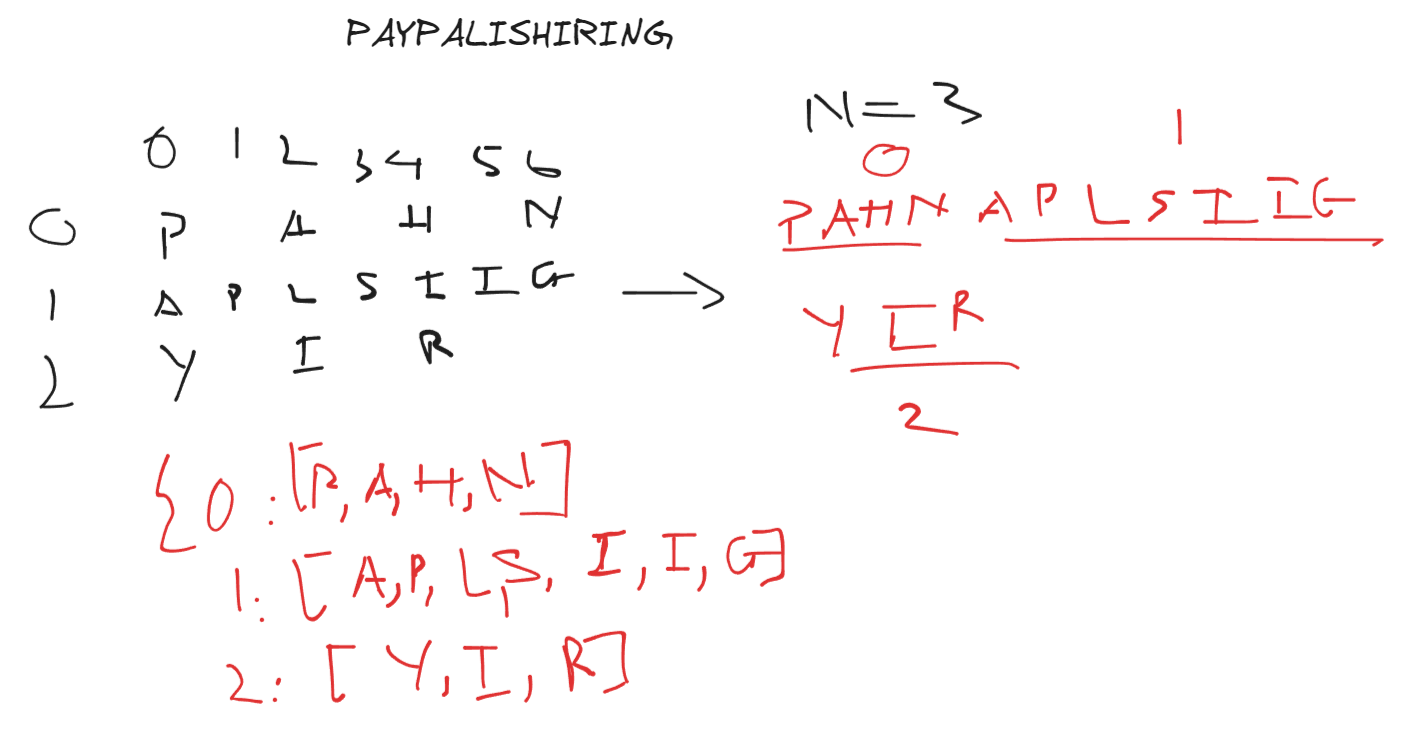 PAYPALISHIRING
N = 3
0 1 2 3 4 5 6
0 P A H N
1 A P L S I I G →
2 Y I R
0 1
PAHN A P L S I I G
Y I R
2
{ 0 : [P, A, H, N]
1 : [ A, P, L, S, I, I, G]
2 : [ Y, I, R]